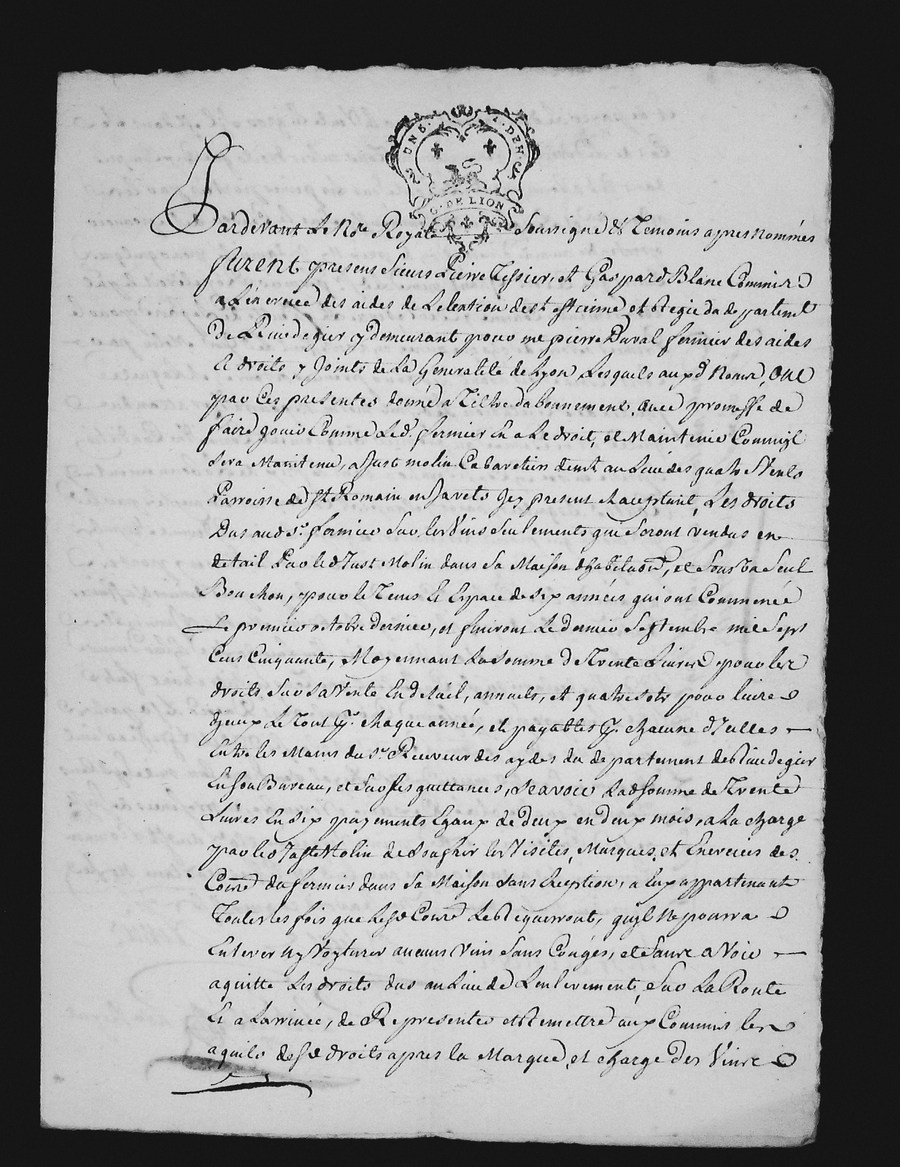 UN S. 4. DEN.
G. DE LION
Pardevant Le Nore Royal Soussigné & Temoins apres nommés
furent presens sieurs Pierre Tissier, et Gaspard Blanc Commis
a L'exercice des aides de Lelection de st estienne et Regie du departemt
De Rive de gier y demeurant pour me pierre Duval fermier des aides
et droits y Joints de La Generalité de Lyon Lesquels aupd Noms, Ont
par Ces presentes donné a Tiltre dabonnement, avec promesse de
faire Jouir Comme Led. fermier En a Le droit, et Maintenir Comme il
sera Maintenu, a Just molin Cabaretier demt au Lieu des quatre Vents
Parroisse de st Romain en Javets Icy present et acceptant, Les droits
Dus aud sr. fermier Sur les Vins seulements que seront vendus en
detail Par led Just Molin dans sa Maison d'habitaon, et sous un seul
Bouchon, pour le Tems et Espace de six années qui ont Commencé
Le premier octobre dernier, et finiront Le dernier Septembre mil sept
Cens Cinquante, Moyennant La somme de Trente Livres pour les
droits sur sa Vente En détail, annuels, et quatre sols pour livre
d'yceux Le Tout pr. chaque année, et payables pr. chacune d'Icelles
Entre les Mains du sr. Receveur des aydes du departement de Rive de gier
En son Bureau, et sur ses quittances, Scavoir Lad somme de Trente
Livres En six payements Egaux de deux en deux mois, a La charge
par led Just Molin de souffrir les Visites, Marques, et Exercices des
Comis du fermier dans sa Maison sans Exeption, a Eux appartenant
Toutes les fois que Lesd Comis Le Requerront, quyl Ne pourra
Enlever ny Voyturer aucuns Vins sans Congés, et sans avoir
aquitté Les droits dus au Lieu de L'enlevement, Sur La Route
Et a Larrivée, de Representer et Remettre aux Commis les
aquits desd droits apres la Marque, et charge des Vins